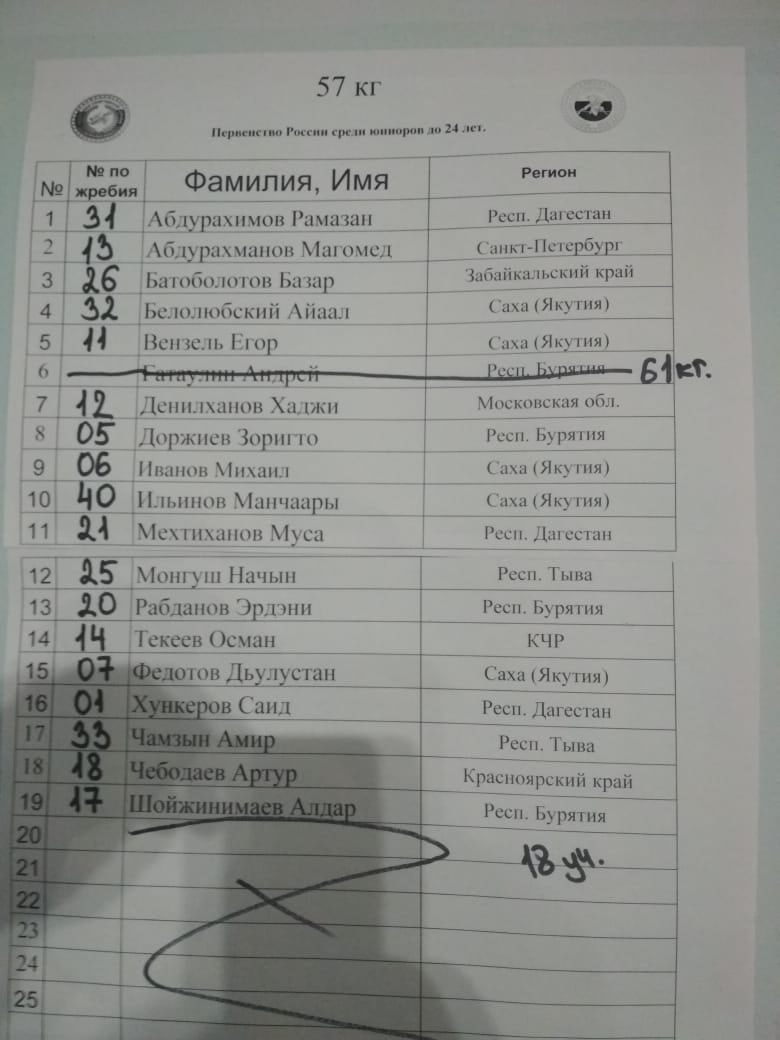 57 кг
Первенство России среди юниоров до 24 лет.
№ № по жребия Фамилия, Имя Регион
1 31 Абдурахимов Рамазан Респ. Дагестан
2 13 Абдурахманов Магомед Санкт-Петербург
3 26 Батоболотов Базар Забайкальский край
4 32 Белолюбский Айаал Саха (Якутия)
5 11 Вензель Егор Саха (Якутия)
6 Гатаулин Андрей Респ. Бурятия 61 кг.
7 12 Денилханов Хаджи Московская обл.
8 05 Доржиев Зоригто Респ. Бурятия
9 06 Иванов Михаил Саха (Якутия)
10 40 Ильинов Манчаары Саха (Якутия)
11 21 Мехтиханов Муса Респ. Дагестан
12 25 Монгуш Начын Респ. Тыва
13 20 Рабданов Эрдэни Респ. Бурятия
14 14 Текеев Осман КЧР
15 07 Федотов Дьулустан Саха (Якутия)
16 01 Хункеров Саид Респ. Дагестан
17 33 Чамзын Амир Респ. Тыва
18 18 Чебодаев Артур Красноярский край
19 17 Шойжинимаев Алдар Респ. Бурятия
20
18 уч.
21
22
23
24
25